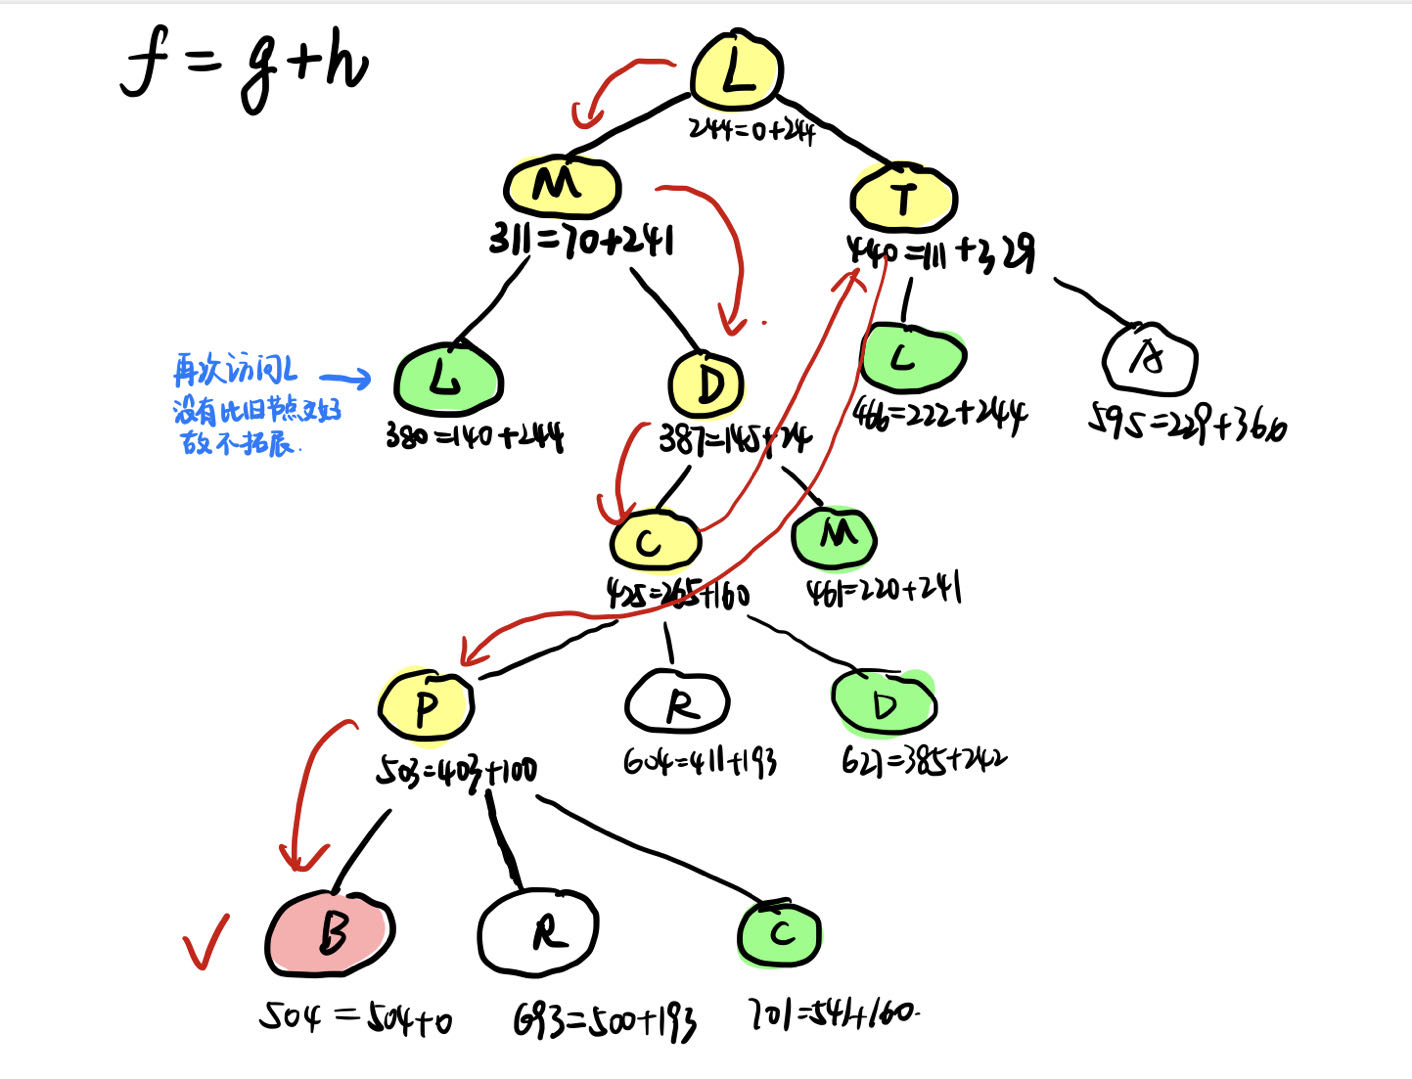 f = g+h
L
244=0+244
M
311=70+241
T
440=111+329
再次访问L
没有比旧节点更好
故不拓展.
L
380=140+244
D
387=145+24
L
466=222+244
A
595=229+366
C
425=265+160
M
461=220+241
P
503=403+100
R
604=411+193
D
627=385+242
B
504=504+0
R
693=500+193
C
701=541+160